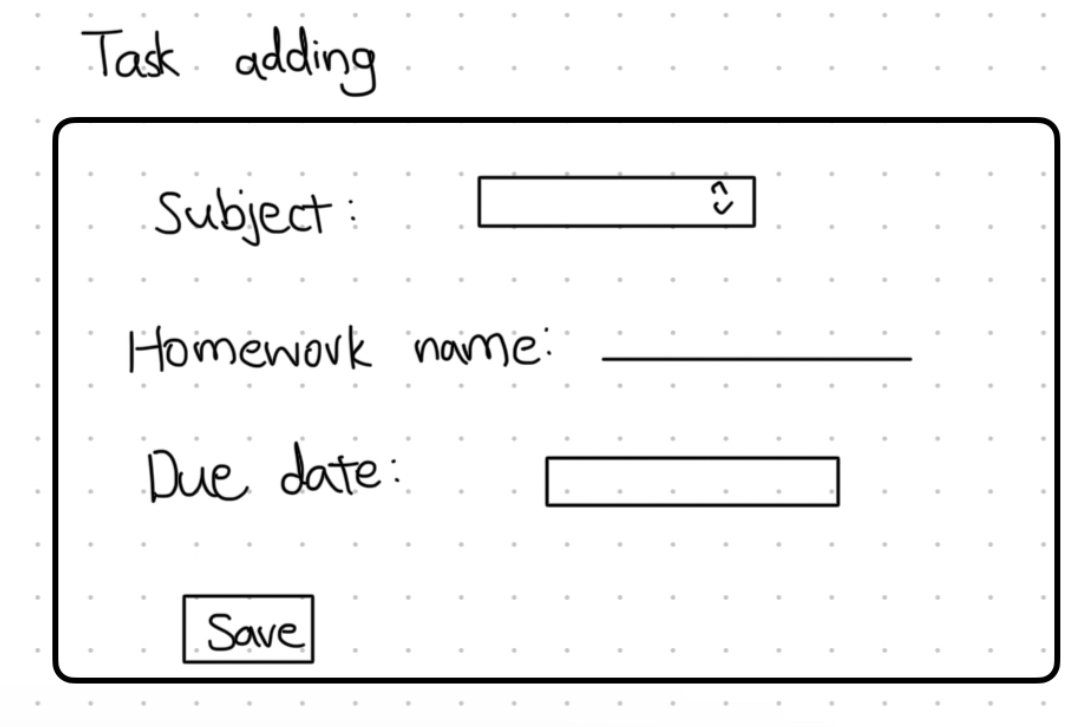 Task adding
Subject:
Homework name:
Due date:
Save